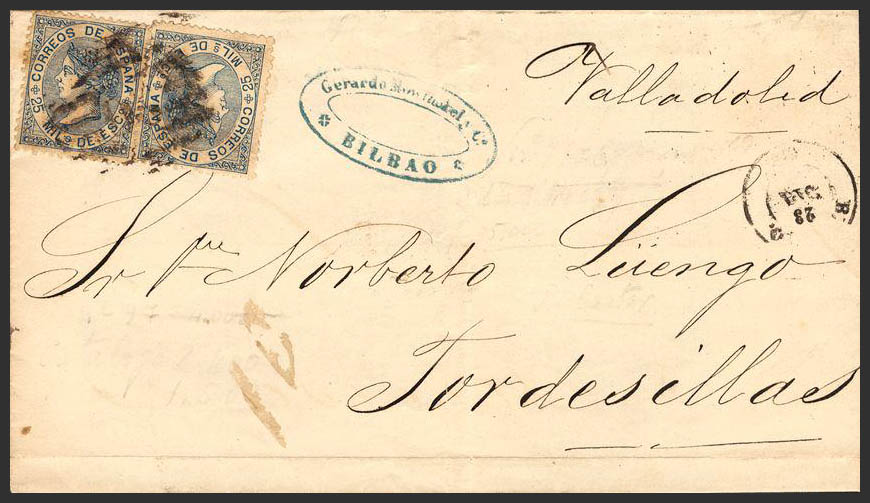 CORREOS DE ESPAÑA
25 MILs DE ESCo
CORREOS DE ESPAÑA
25 MILs DE
Gerardo y Cª
BILBAO
Valladolid
23
DIC
Sr Dn Norberto Lüengo
Tordesillas